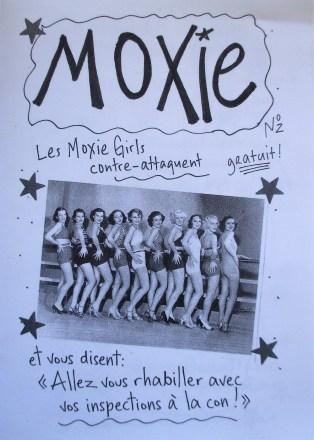 MOXie
N°2
Les Moxie Girls
contre-attaquent
gratuit!
et vous disent:
« Allez vous rhabiller avec
vos inspections à la con ! »